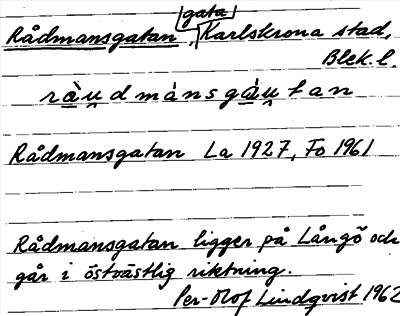 gata
Rådmansgatan, Karlskrona stad,
Blek. l.
ràu̯dmánsgàu̯tan
Rådmansgatan La 1927, Fo 1961
Rådmansgatan ligger på Långö och
går i östvästlig riktning.
Per-Olof Lindqvist 1962